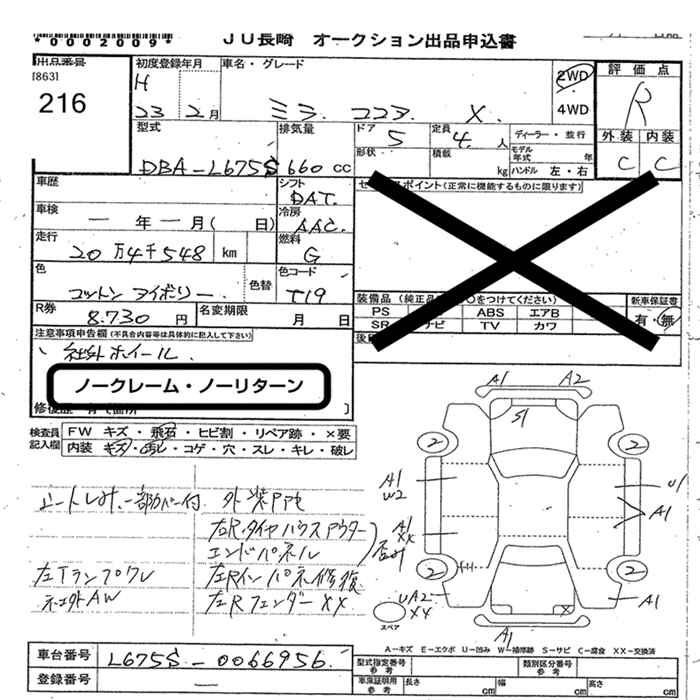 *0002009*
JU長崎 オークション出品申込書
出品番号
[863]
216
初度登録年月
H
23 2月
車名・グレード
ミラ ココア X
2WD
4WD
評価点
R
外装 内装
C C
型式
DBA-L675S
排気量
660 cc
ドア
5
定員
4 人
ディーラー・並行
形状
積載
kg
モデル年式 年
ハンドル 左・右
車歴
シフト
DAT.
車検
— 年 — 月( 日)
冷房
AAC.
走行
20万4千548 km
燃料
G
色
コットン アイボリー
色替
色コード
T19
R券
8.730 円
名変期限
月 日
ポイント(正常に機能するものに限ります)
装備品(純正品 ○をつけてください)
PS ABS エアB
SR ナビ TV カワ
新車保証書
有・無
注意事項申告欄(不具合内容等は具体的に記入して下さい)
社外ホイール
ノークレーム・ノーリターン
検査員記入欄
FW キズ・飛石・ヒビ割・リペア跡・×要
内装 キズ・汚レ・コゲ・穴・スレ・キレ・破レ
シートしみ、一部カバー付
外装PP色
左R.タイヤハウスアウター
エンドパネル
歪み
左Tランプワレ
左Rインパネ修復
社外AW
左Rフェンダー XX
A1 A2
S1
2 2
A1
W2
U1
A1
A1
XX
2 2
UA2
XX
A1
A1
スペア
A-キズ E-エクボ U-凹み W-補修跡 S-サビ C-腐食 XX-交換済
車台番号
L675S-0066956
登録番号
—
型式指定番号
参考
類別区分番号
参考
車庫証明用
参考
長さ cm
幅 cm
高さ cm